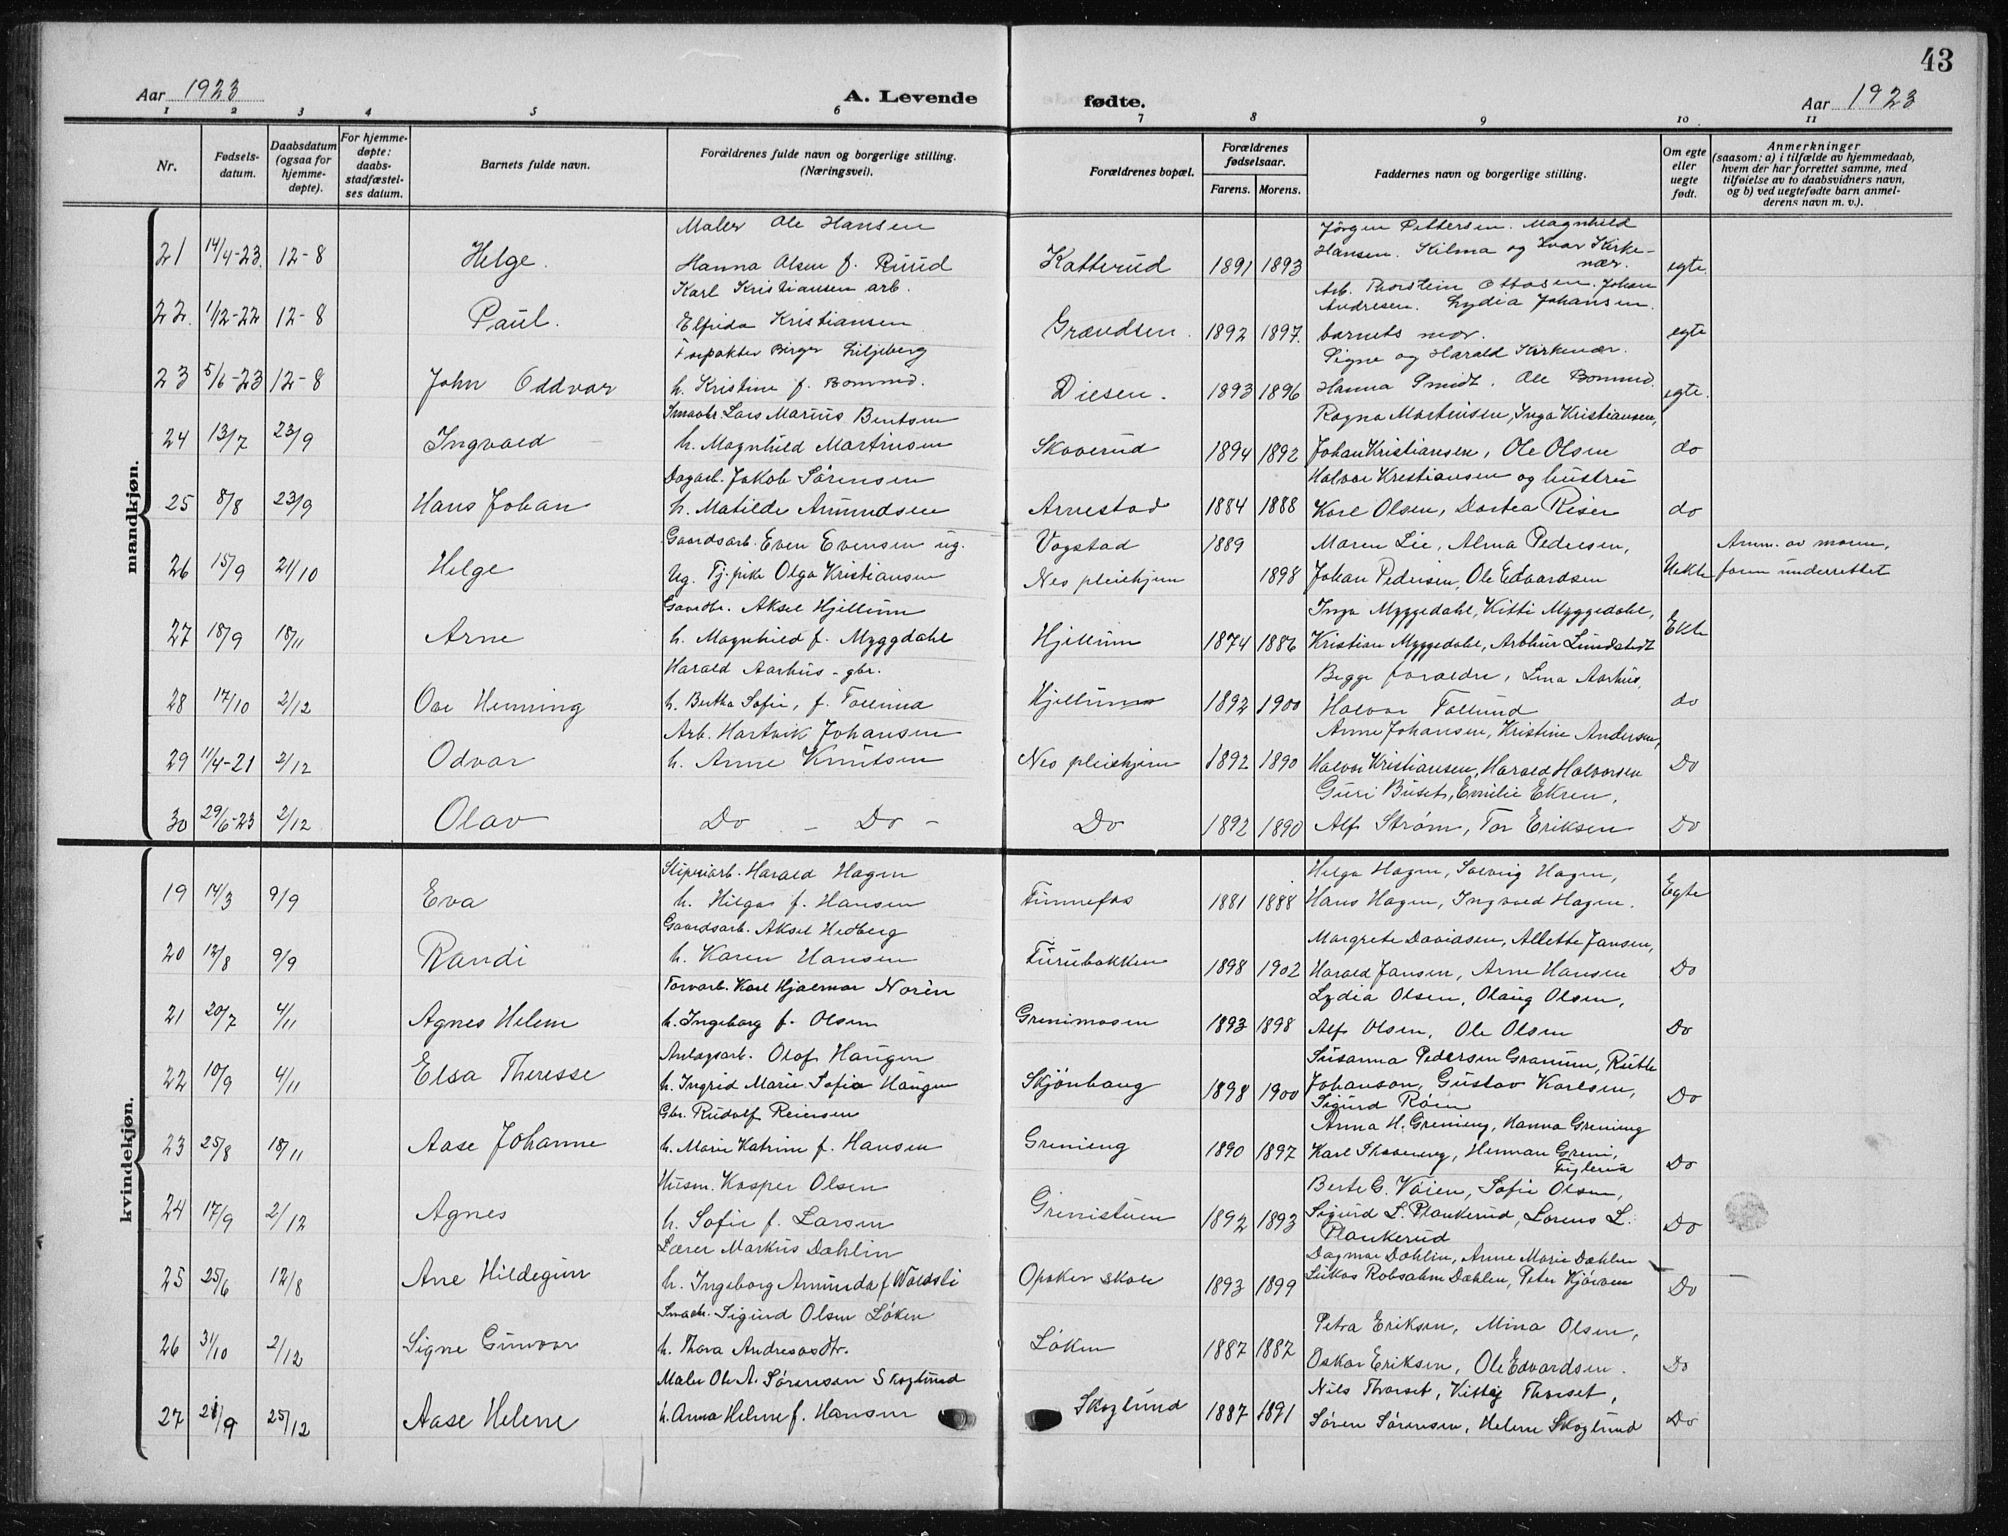 43
Aar 1923
A. Levende
fødte.
Aar 1923
1 2 3 4 5 6 7 8 9 10 11
Nr.
Fødsels-
datum.
Daabsdatum
(ogsaa for
hjemme-
døpte).
For hjemme-
døpte:
daabs-
stadfæstel-
ses datum.
Barnets fulde navn.
Forældrenes fulde navn og borgerlige stilling.
(Næringsvei).
Forældrenes bopæl.
Forældrenes
fødselsaar.
Farens. Morens.
Faddernes navn og borgerlige stilling.
Om egte
eller
uegte
født.
Anmerkninger
(saasom: a) i tilfælde av hjemmedaab,
hvem der har forrettet samme, med
tilføielse av to daabsvidners navn,
og b) ved uegtefødte barn anmel-
derens navn m. v.).
mandkjøn.
Maler Ole Hansen
Jörgen Pettersen. Magnhild
21 14/4-23. 12-8 Helge. Hanna Olsen f. Ruud Katterud 1891 1893 Hansen. Hilma og Ivar Kirke-
nær. egte.
Karl Kristiansen arb.
Arb. Thorstein Ottosen. Johan
Andresen. Lydia Johansen.
22. 1/12-22 12-8 Paul. Elfrida Kristiansen Grændsen. 1892 1897. barnets mor. egte
Forpakter Birger Liljeberg
Signe og Harald Kirkenær.
23 5/6-23 12-8 John Oddvar h. Kristine f. Bommed. Diesen. 1893 1896 Hanna Smidt. Ole Bommed. egte.
Smaabr. Lars Marius Bentsen
Ragna Martinsen, Inga Kristiansen,
24 13/7 23/9 Ingvald h. Magnhild Martinsen Skoverud 1894 1892 Johan Kristiansen, Ole Olsen do
Dagarb. Jakob Sørensen
Halvor Kristiansen og hustru
25 8/8 23/9 Hans Johan h. Matilde Amundsen Arnestad 1884 1888 Karl Olsen, Dortea Riser do
Gaardsarb. Even Evensen ug. Vogstad 1889 Maren Lie, Alma Pedersen, Anm. av moren,
26 15/9 21/10 Helge Ug. Tj.pike Olga Kristiansen Nes pleiehjem 1898 Johan Pedersen, Ole Edvardsen Uekte faren underrettet
Gaardbr. Aksel Hjellum
Inga Myggedahl, Kitti Myggedahl,
27 18/9 18/11 Arne h. Magnhild f. Myggdahl Hjellum 1874 1886 Kristian Myggedahl, Arthur Lundstedt Ekte
Harald Aarhus - gbr.
Begge foraldre, Lina Aarhus,
28 17/10 2/12 Ove Henning h. Bertha Sofie, f. Tollund Hjellum 1892 1900 Halvor Tollund do
Arb. Hartvik Johansen
Anne Johansen, Kristine Andersen,
29 11/4-21 2/12 Odvar h. Anne Knutsen Nes pleiehjem 1892 1890 Halvor Kristiansen, Harald Halvorsen Do
Guri Buset, Emilie Ekren,
30 29/6-23 2/12 Olav Do - Do - Do 1892 1890 Alf Strøm, Tor Eriksen Do
kvindekjøn.
Sliperiarb. Harald Hagen
Helga Hagen, Solveig Hagen,
19 14/3 9/9 Eva h. Hilga f. Hansen Funnefos 1881 1888 Hans Hagen, Ingvald Hagen. Egte
Gaardsarb. Aksel Hedberg
Margrete Davidsen, Allette Jansen,
20 12/8 9/9 Randi h. Karen Hansen Furubakken 1898 1902 Harald Jansen, Arne Hansen Do
Torvarb. Karl Hjalmar Norèn
Lydia Olsen, Olaug Olsen,
21 20/7 4/11 Agnes Helene h. Ingeborg f. Olsen Grenimosen 1893 1898 Alf Olsen, Ole Olsen Do
Anlegsarb. Olof Haugen
Susanna Pedersen Granum, Ruth
22 10/9 4/11 Elsa Theresse h. Ingrid Marie Sofia Haugen Skjønhaug 1898 1900 Johanson, Gustav Karlsen, Do
Sigurd Röen
Gbr. Rudolf Reiersen
Anna H. Grenieng, Hanna Grenieng
23 25/8 18/11 Aase Johanne h. Marie Katrine f. Hansen Grenieng 1890 1897 Karl Skaveneng, Herman Greni, Do
Fuglerud
Husm. Kasper Olsen
Berte G. Vaien, Sofie Olsen,
24 17/9 2/12 Agnes h. Sofie f. Larsen Grenistuen 1892 1893 Sigurd L. Plankerud, Lorens L. Do
Plankerud
Lærer Markus Dæhlin
Dagmar Dæhlin, Anne Marie Dæhlen
25 25/6 12/8 Ane Hildegun h. Ingeborg Amunda f Woldsli Opaker skole 1893 1899 Lukas Robsahm Dæhlen, Peter Kjörven Do
Smaabr. Sigurd Olsen Løken
Petra Eriksen, Mina Olsen,
26 31/10 2/12 Signe Gunvor h. Thora Andreasdtr. Løken 1887 1882 Oskar Eriksen, Ole Edvardsen. Do
Maler Ole A. Sørensen Skoglund
Nils Thorset, Kitty Thorset,
27 21/9 25/12 Aase Helene h. Anna Helene f. Hansen Skoglund 1887 1891 Søren Sørensen, Helene Skoglund Do